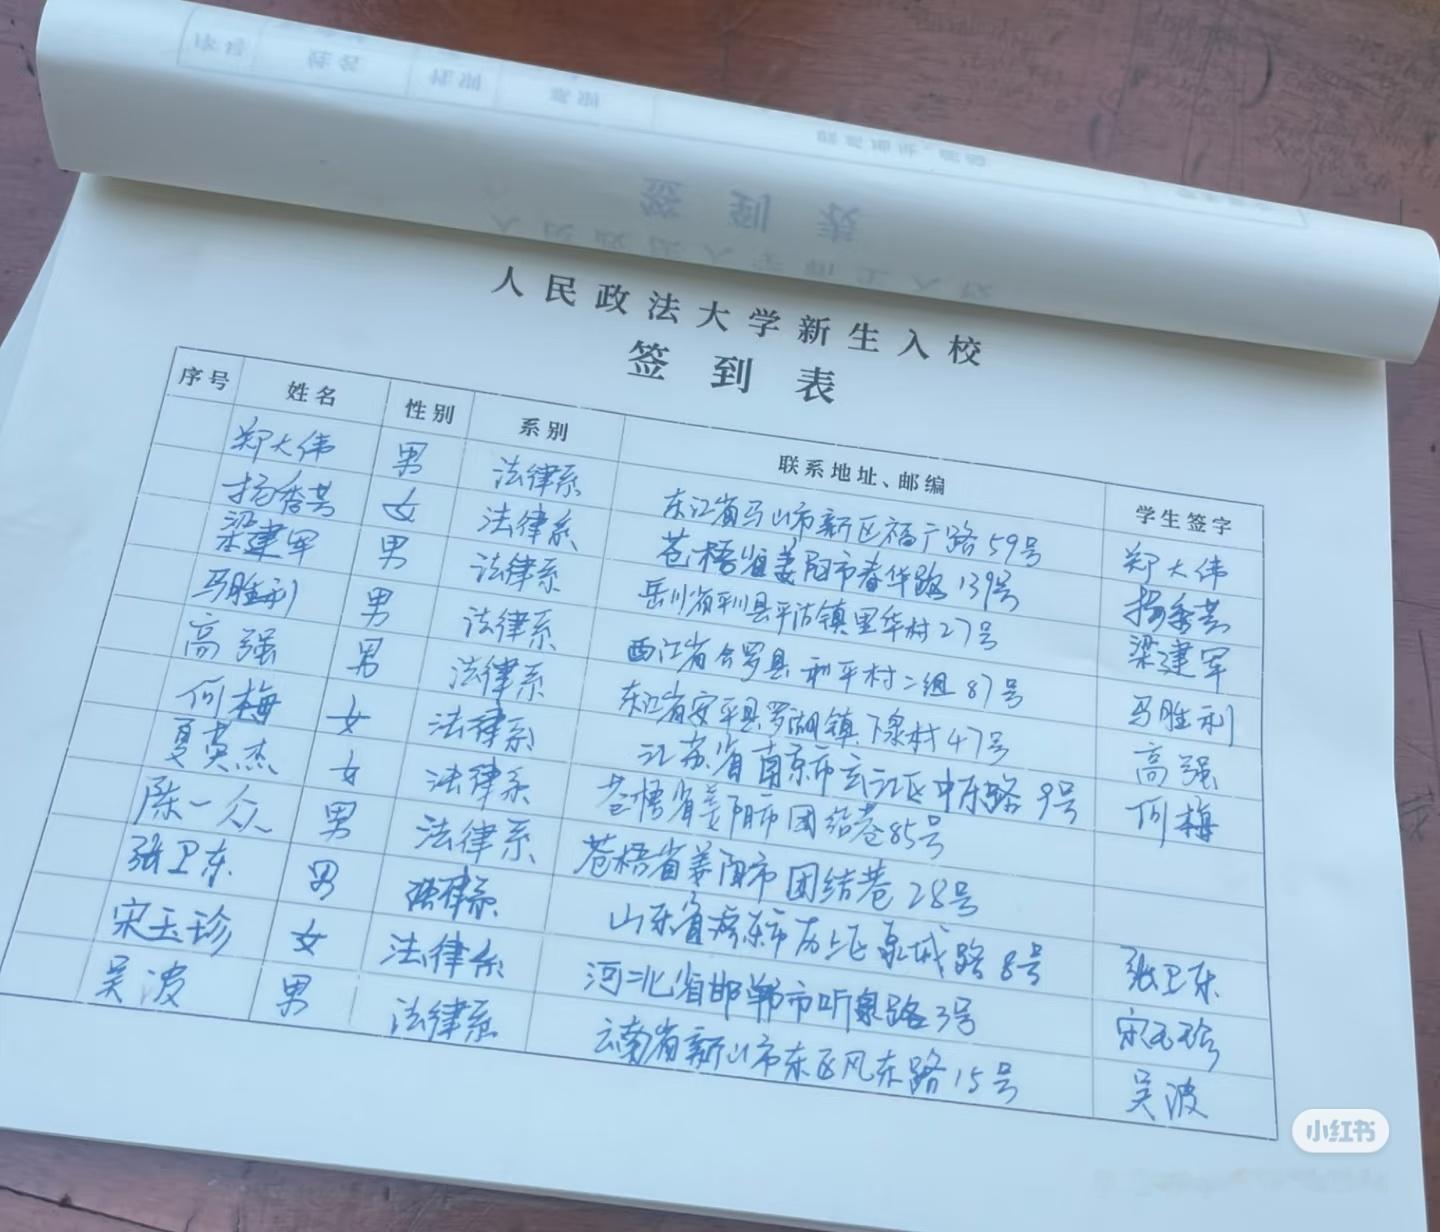 人民政法大学新生入校
签到表
序号 姓名 性别 系别 联系地址、邮编 学生签字
郑大伟 男 法律系 东江省马山市新区福广路59号 郑大伟
杨秀芸 女 法律系 苍梧省姜阳市春华路139号 杨秀芸
梁建军 男 法律系 岳川省平川县平沽镇里华村27号 梁建军
马胜利 男 法律系 西江省合罗县和平村二组87号 马胜利
高强 男 法律系 东江省安平县罗湖镇下泉村47号 高强
何梅 女 法律系 江苏省南京市玄江区中东路9号 何梅
夏英杰 女 法律系 苍梧省姜阳市团结巷85号
陈一众 男 法律系 苍梧省姜阳市团结巷28号
张卫东 男 法律系 山东省 东市历上区泉城路8号 张卫东
宋玉珍 女 法律系 河北省邯郸市听泉路3号 宋玉珍
吴波 男 法律系 云南省新山市东区风东路15号 吴波
小红书